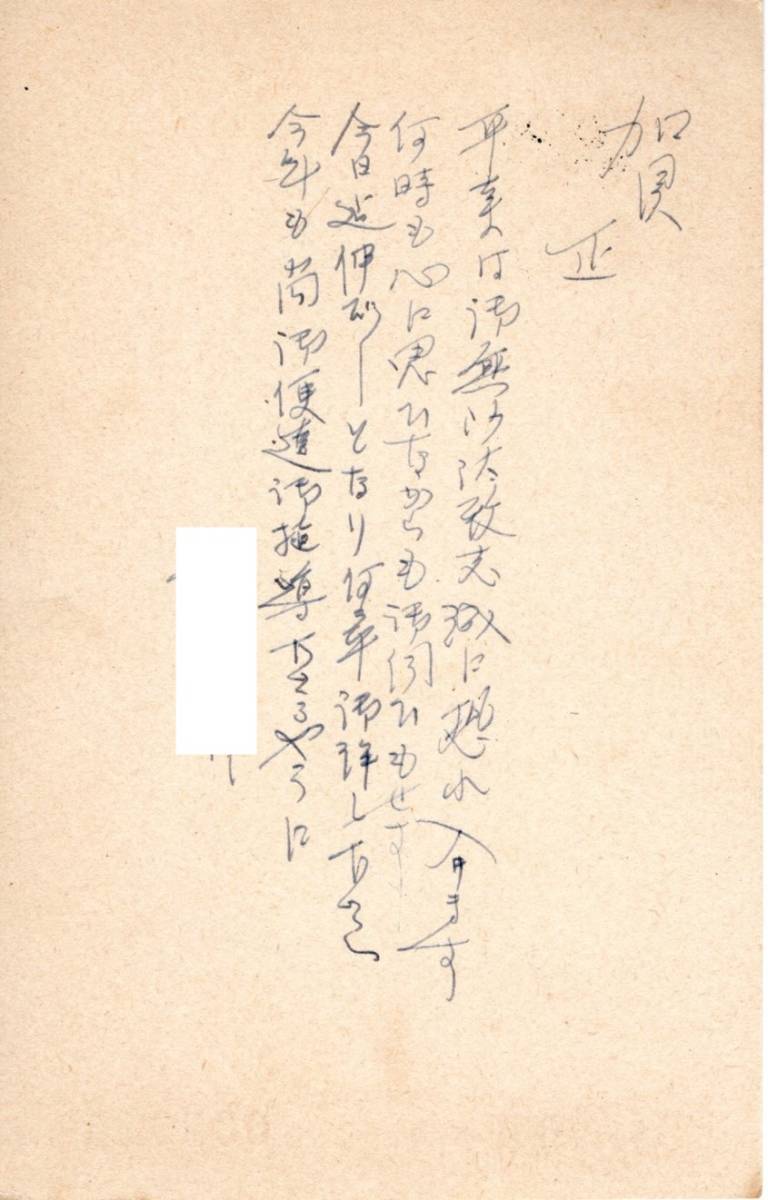 加貝
正
平素は御無沙汰致し誠に恐れ入ります
何時も心に思ひながらも御伺ひもせず
今日迄伸ばしとなり何卒御許し下さい
今年も尚御便達御指導下さるやうに